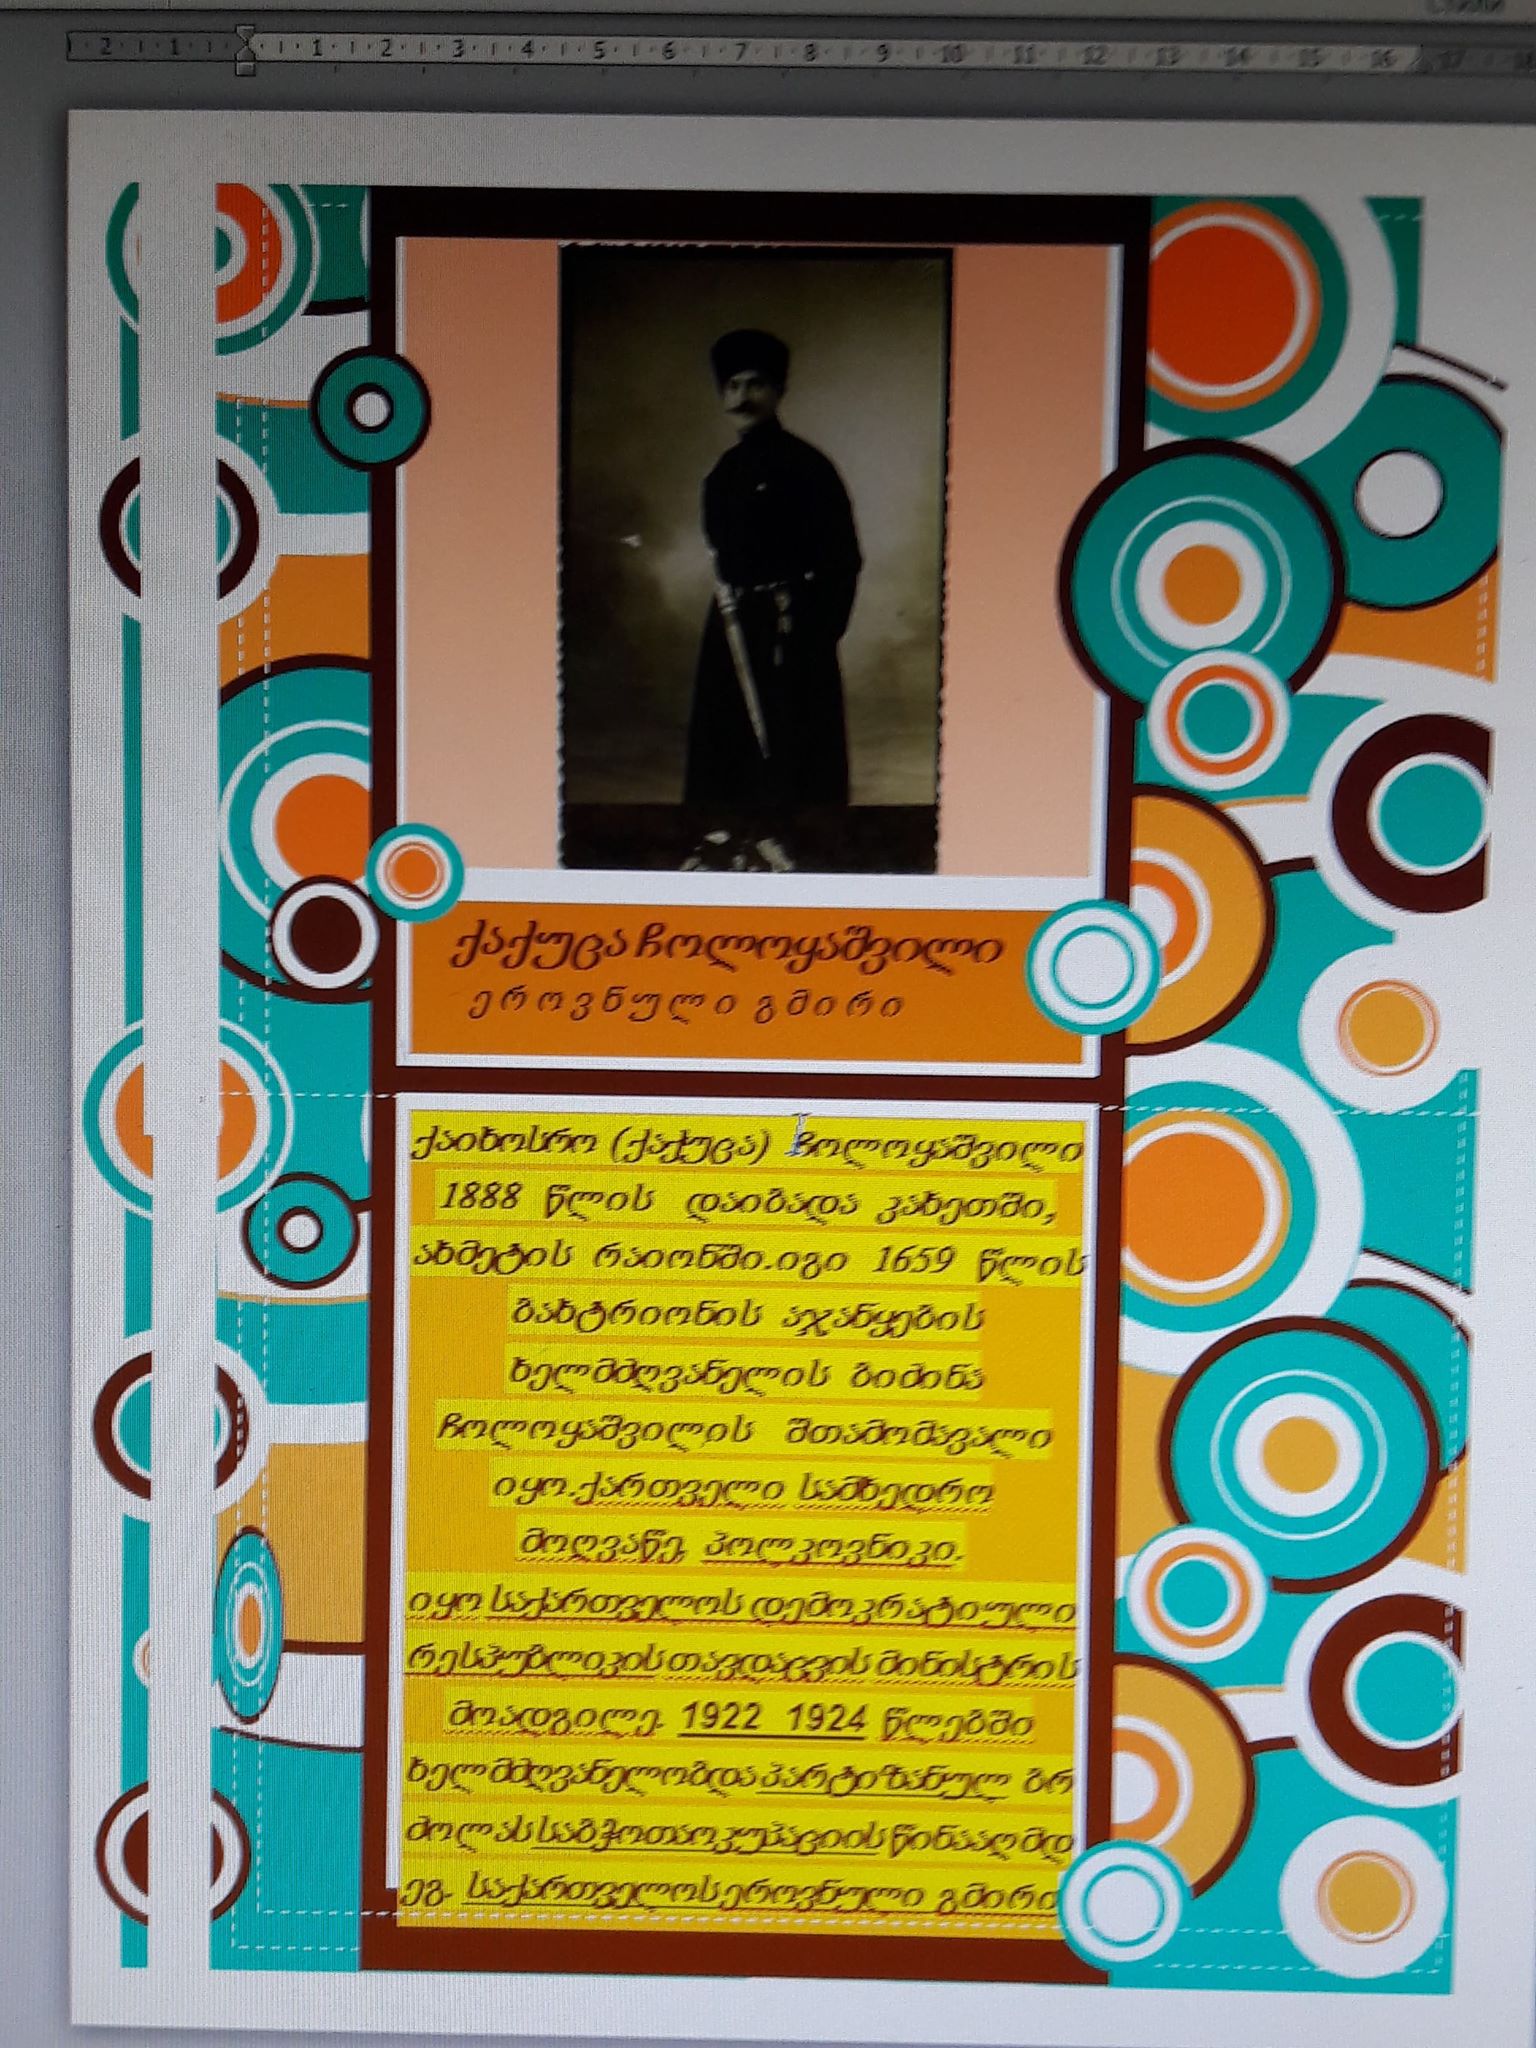 Стили
2 1 1 2 3 4 5 6 7 8 9 10 11 12 13 14 15 16 17 18
ქაქუცა ჩოლოყაშვილი
ეროვნული გმირი
ქაიხოსრო (ქაქუცა) ჩოლოყაშვილი
1888 წლის დაიბადა კახეთში,
ახმეტის რაიონში.იგი 1659 წლის
ბახტრიონის აჯანყების
ხელმძღვანელის ბიძინა
ჩოლოყაშვილის შთამომავალი
იყო.ქართველი სამხედრო
მოღვაწე, პოლკოვნიკი.
იყო საქართველოს დემოკრატიული
რესპუბლიკის თავდაცვის მინისტრის
მოადგილე. 1922 1924 წლებში
ხელმძღვანელობდა პარტიზანულ ბრ
ძოლას საბჭოთა ოკუპაციის წინააღმდ
ეგ. საქართველოს ეროვნული გმირი